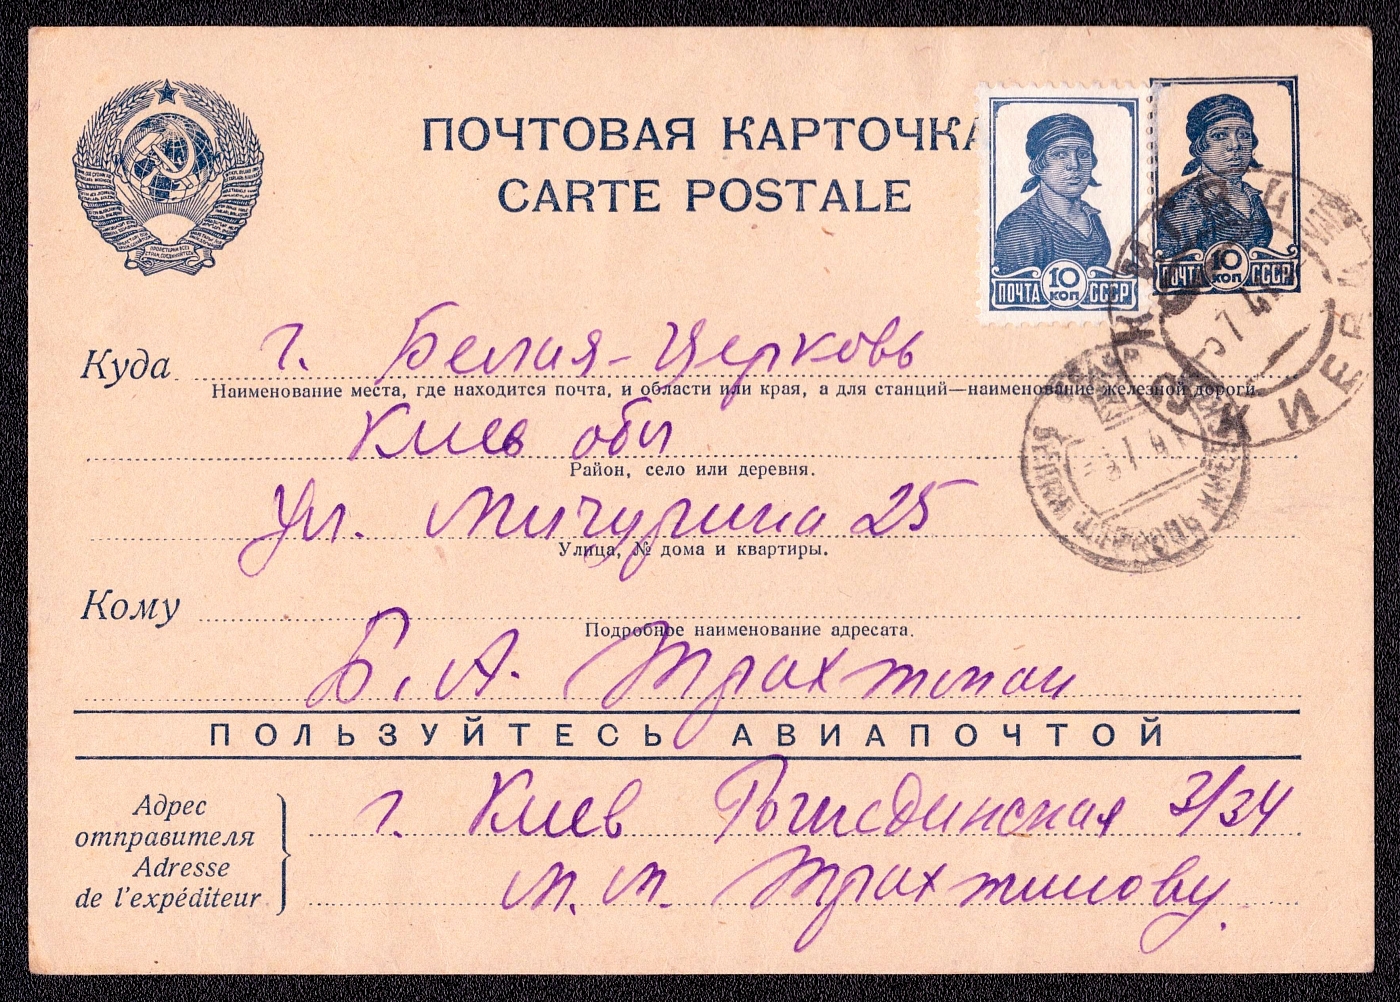 ПОЧТОВАЯ КАРТОЧКА
CARTE POSTALE
ПРОЛЕТАРИИ ВСЕХ
СТРАН, СОЕДИНЯЙТЕСЬ
10 КОП
ПОЧТА СССР
10 КОП
ПОЧТА СССР
Куда г. Белая-Церковь
Наименование места, где находится почта, и области или края, а для станций—наименование железной дороги.
Киев обл
Район, село или деревня.
Ул. Мичурина 25
Улица, № дома и квартиры.
Кому
Подробное наименование адресата.
Б. А.
ПОЛЬЗУЙТЕСЬ АВИАПОЧТОЙ
Адрес
отправителя
Adresse
de l'expéditeur
г. Киев 3/34
М. М.
КИЕВ
БЕЛАЯ ЦЕРКОВЬ КИЕВСК